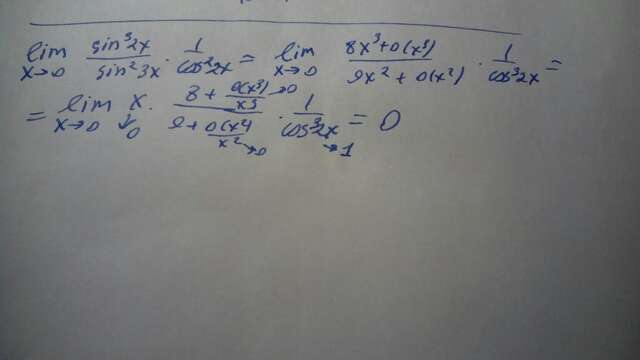 lim x→0 sin³2x / sin²3x · 1 / cos³2x = lim x→0 (8x³+o(x³)) / (9x²+o(x²)) · 1 / cos³2x =
= lim x→0 x→0 · (8 + o(x³)/x³→0) / (9 + o(x²)/x²→0) · 1 / cos³2x→1 = 0